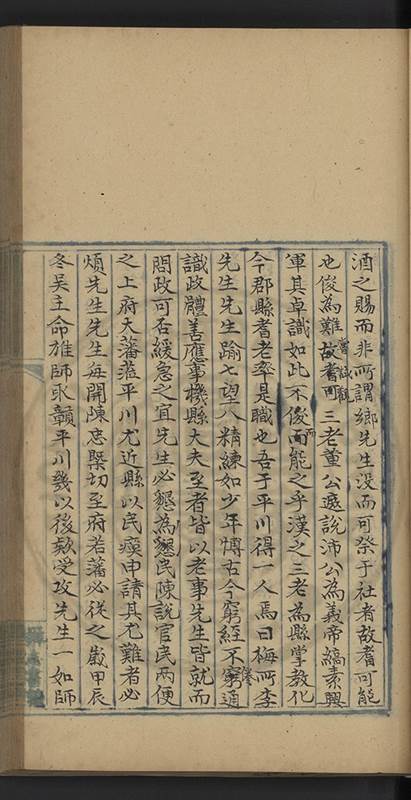 酒之賜而非所謂鄉先生没而可祭于社者故耆可能
也俊為難故耆可三老董公遮說沛公為義帝縞素興
軍其卓識如此不俊而能之乎漢之三老為縣掌教化
今郡縣耆老率是職也吾于平川得一人焉曰梅所李
先生先生踰七望八精練如少年慱古今窮經不窮通
識政體善應事機縣大夫至者皆以老事先生皆就而
問政可否緩急之宜先生必懇為懇民陳說官民兩便
之上府大藩蒞平川尤近縣以民瘼申請其尤難者必
煩先生先生每開陳忠槩切至府若藩必從之歲甲辰
冬吴主命雄師取贛平川幾以後欵受攻先生一如師